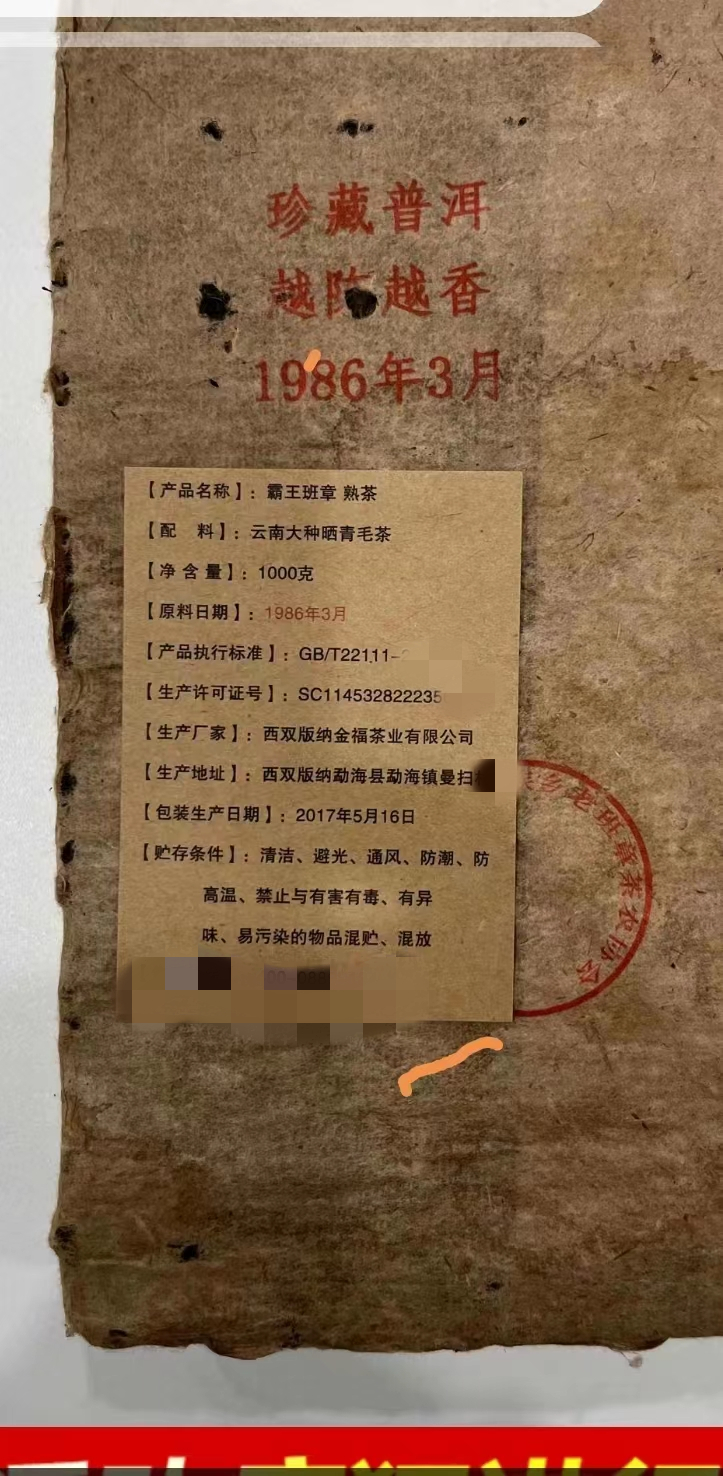 珍藏普洱
越陈越香
1986年3月
【产品名称】：霸王班章 熟茶
【配 料】：云南大种晒青毛茶
【净 含 量】：1000克
【原料日期】：1986年3月
【产品执行标准】：GB/T22111-
【生产许可证号】：SC114532822235
【生产厂家】：西双版纳金福茶业有限公司
【生产地址】：西双版纳勐海县勐海镇曼扫
【包装生产日期】：2017年5月16日
【贮存条件】：清洁、避光、通风、防潮、防
高温、禁止与有害有毒、有异
味、易污染的物品混贮、混放
老班章茶农协会